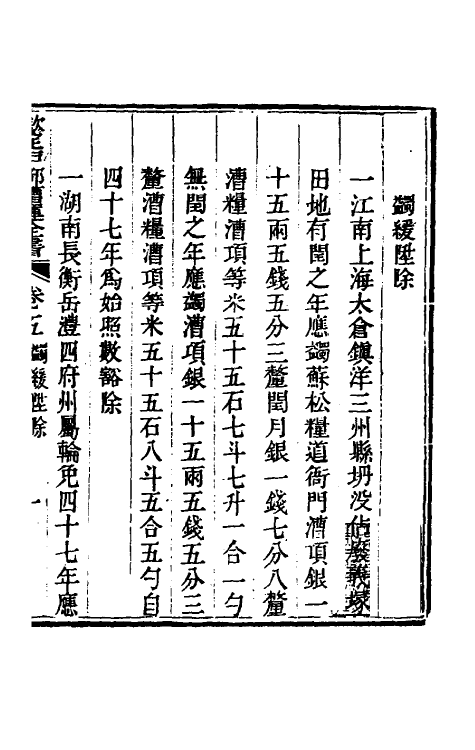 蠲緩陞除
一江南上海太倉鎮洋三州縣坍没佔廢義塚
田地有閏之年應蠲蘇松糧道衙門漕項銀一
十五兩五錢五分三釐閏月銀一錢七分八釐
漕糧漕項等米五十五石七斗七升一合一勺
無閏之年應蠲漕項銀一十五兩五錢五分三
釐漕糧漕項等米五十五石八斗五合五勺自
四十七年為始照數豁除
一湖南長衡岳澧四府州屬輪免四十七年應
漕運全書 卷之五 蠲緩陞除 一